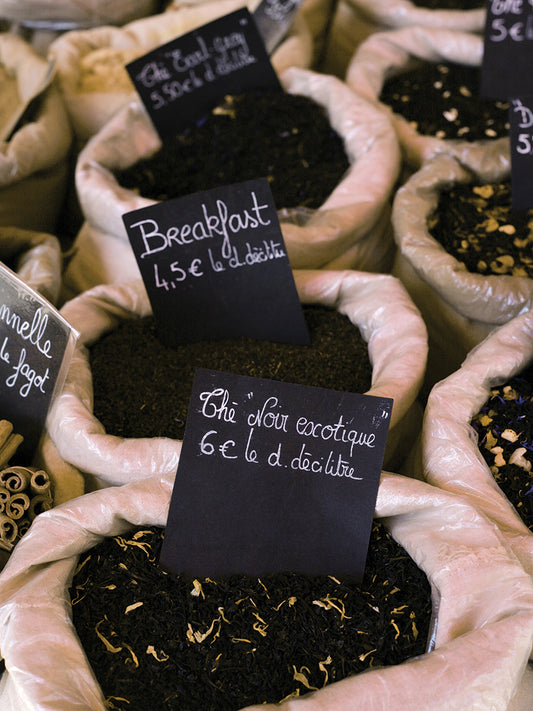 Thé "Earl grey"
5.50€ le d. décilitre
Thé
5€
D
5
Breakfast
4,5€ le d. décilitre
nnelle
le fagot
Thé "Noir exotique"
6€ le d. décilitre